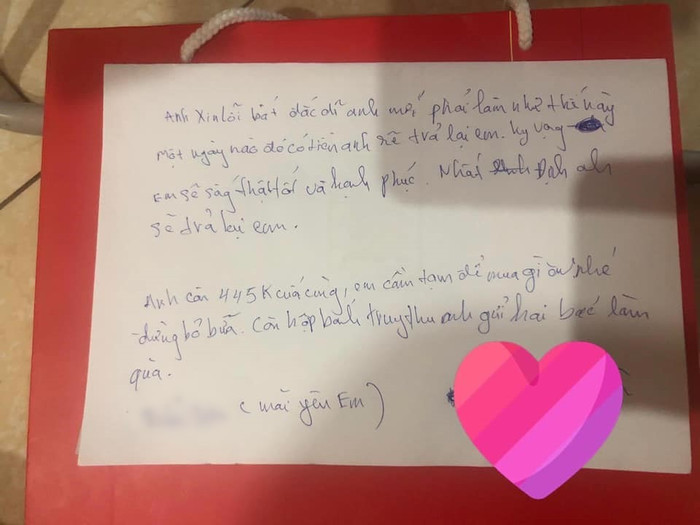 Anh xin lỗi bất đắc dĩ anh mới phải làm như thế này
một ngày nào đó có tiền anh sẽ trả lại em. Hy vọng
em sẽ sống thật tốt và hạnh phúc. Nhất định anh
sẽ trả lại em.
Anh còn 445K cuối cùng, em cầm tạm để mua gì ăn nhé
đừng bỏ bữa. Còn hộp bánh trung thu anh gửi hai bác làm
quà.
( mãi yêu Em )